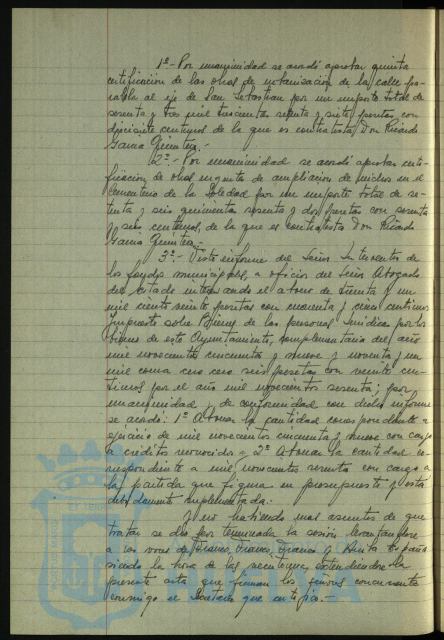 1º.- Por unanimidad se acordó aprobar quinta
certificación de las obras de urbanización de la calle pa-
ralela al eje de San Sebastian por un importe total de
sesenta y tres mil trescientas setenta y siete pesetas con
diecisiete centimos de la que es contratista Don Ricardo
Garcia Quintero.-
2º.- Por unanimidad se acordó aprobar certi-
ficación de obras urgentes de ampliación de nichos en el
Cementerio de la Soledad por un importe total de se-
tenta y seis quinientas sesenta y dos pesetas con sesenta
y seis centimos, de la que es contratista Don Ricardo
Garcia Quintero.-
3º.- Visto informe del Señor Interventor de
los fondos municipales, a oficios del Señor Abogado
del Estado interesando el abono de treinta y un
mil ciento veinte pesetas con cincuenta y cinco centimos
Impuesto sobre Bienes de las personas Juridicas por los
bienes de este Ayuntamiento, complementaria del año
mil novecientos cincuenta y nueve y noventa y un
mil cero seis pesetas con veinte cen-
timos por el año mil novecientos sesenta; por
unanimidad y de conformidad con dicho informe
se acordó: 1º Abonar la cantidad correspondiente a
ejercicio de mil novecientos cincuenta y nueve con cargo
a créditos reconocidos y 2º Abonar la cantidad co-
rrespondiente a mil novecientos sesenta con cargo a
la partida que figura en presupuesto y está
debidamente suplementada.
Y no habiendo mas asuntos de que
tratar se dio por terminada la sesión levantandose
a las voces de Franco, Franco, Franco y Arriba España
siendo la hora de las veintiuna, extendiendose la
presente acta que firman los señores concurrentes
conmigo el Secretario que certifico.-